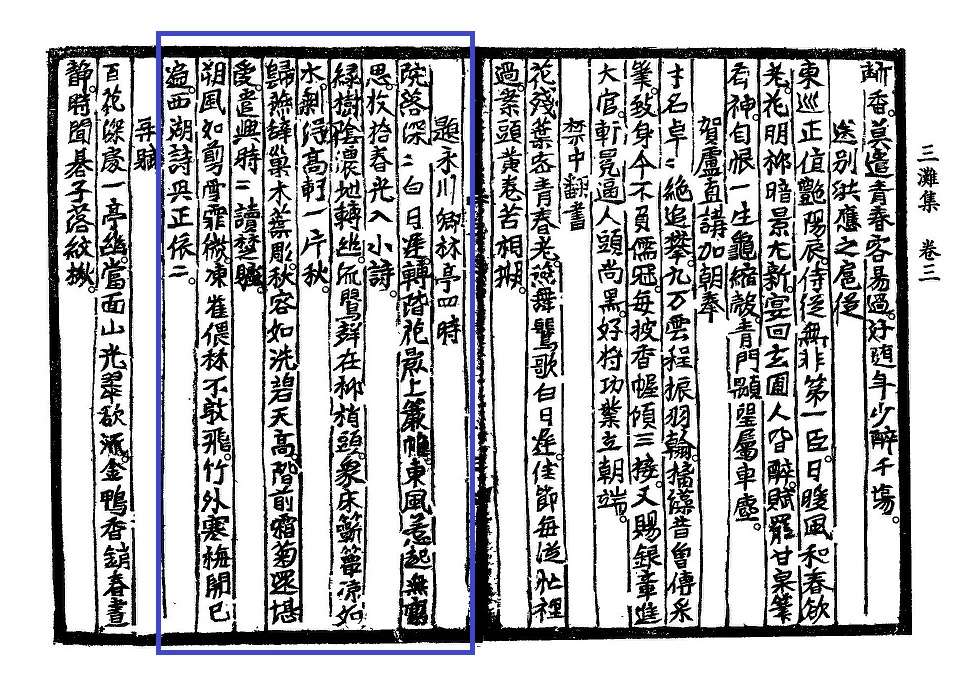 三灘集 卷三
訴香。莫遣青春容易過。好随年少醉千塲。
送別洪應之扈從
東巡正值艶陽辰。侍從無非第一臣。日暖風和春欲
老。花明柳暗景尤新。宴回玄圃人皆醉。賦罷甘泉筆
有神。自恨一生龜縮殼。青門顒望屬車塵。
賀盧直講加朝奉
才名卓〻絶追攀。九万雲程振羽翰。摛藻昔曾傳采
筆。致身今不負儒冠。每披香幄傾三接。又賜銀章進
大官。軒冕逼人頭尚黑。好將功業立朝端。
禁中翻書
花殘葉密青春老。燕舞鶯歌白日遲。佳節每從忙裡
過。案頭黄卷苦相撩。
題永川卿林亭四時
院落深〻白日遲。轉階花影上簾帷。東風惹起無窮
思。收拾春光入小詩。
綠樹陰濃地轉幽。流鶯群在柳梢頭。象床簟凉如
水。剩得高軒一片秋。
歸燕辭巢木葉彫。秋容如洗碧天高。階前霜菊還堪
愛。遣興時〻讀楚騷。
朔風如剪雪霏微。凍雀偎林不敢飛。竹外寒梅開已
遍。西湖詩興正依〻。
再賦
百花深處一亭幽。當面山光翠欲流。金鴨香銷春晝
靜。時聞碁子落紋楸。